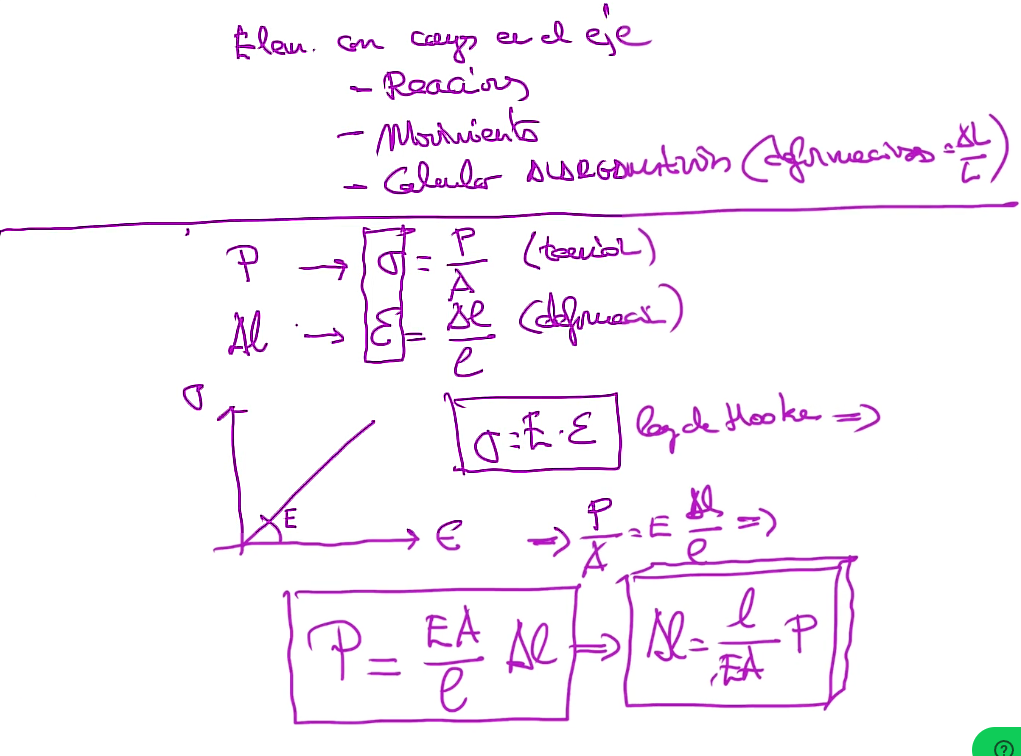 Elem. con carga en el eje
- Reacciones
- Movimiento
- Calcular ALARGAMIENTOS (deformaciones = ΔL/L)
P → σ = P/A (tensión)
Δl → ε = Δl/l (deformación)
σ
σ = E · ε ley de Hooke ⇒
E
ε ⇒ P/A = E Δl/l ⇒
P = EA/l Δl ⇒ Δl = l/EA P
?